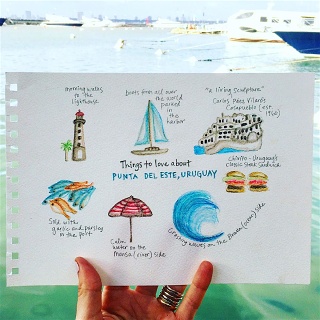 morning walks
to the
lighthouse
boats from all over
the world
parked
in the
harbor
"a living sculpture"
Carlos Páez Vilaró's
Casapueblo (est.
Things to love about
PUNTA DEL ESTE, URUGUAY
Chivito - Uruguay's
classic steak sandwich
Sold with
garlic and parsley
in the port
Calm
water on the
Mansa (river) side
Crashing waves on the Brava (ocean) side